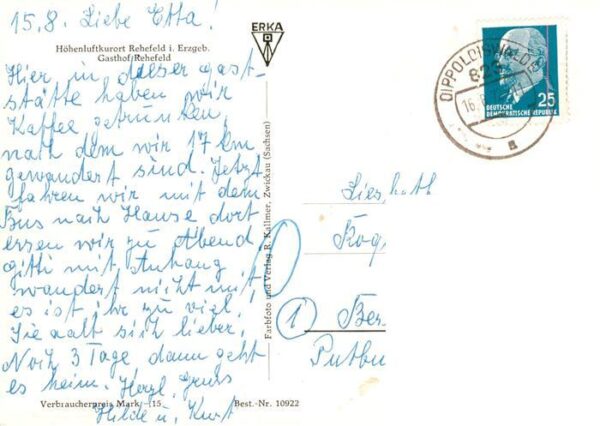 15.8. Liebe Etta!
ERKA
Höhenluftkurort Rehefeld i. Erzgeb.
Gasthof Rehefeld
Hier in dieser Gast-
stätte haben wir
Kaffee getrunken,
nach dem wir 17 km
gewandert sind. Jetzt
fahren wir mit dem
Bus nach Hause dort
essen wir zu Abend
Gitti mit Anhang
wandert nicht mit
es ist ihr zu viel.
Sie aalt sich lieber.
Noch 3 Tage, dann geht
es heim. Herzl. Gruss
Hilde u. Kurt
Verbraucherpreis Mark -,15
Best.-Nr. 10922
Farbfoto und Verlag R. Kallmer, Zwickau (Sachsen)
DIPPOLDISWALDE
823
16.8.
a
DEUTSCHE
DEMOKRATISCHE REPUBLIK
25
Kog
1 Ber
Putbu